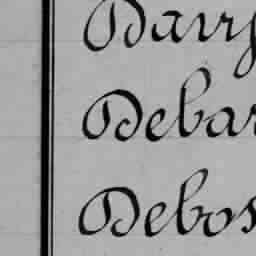 Davy
Debar
Debos